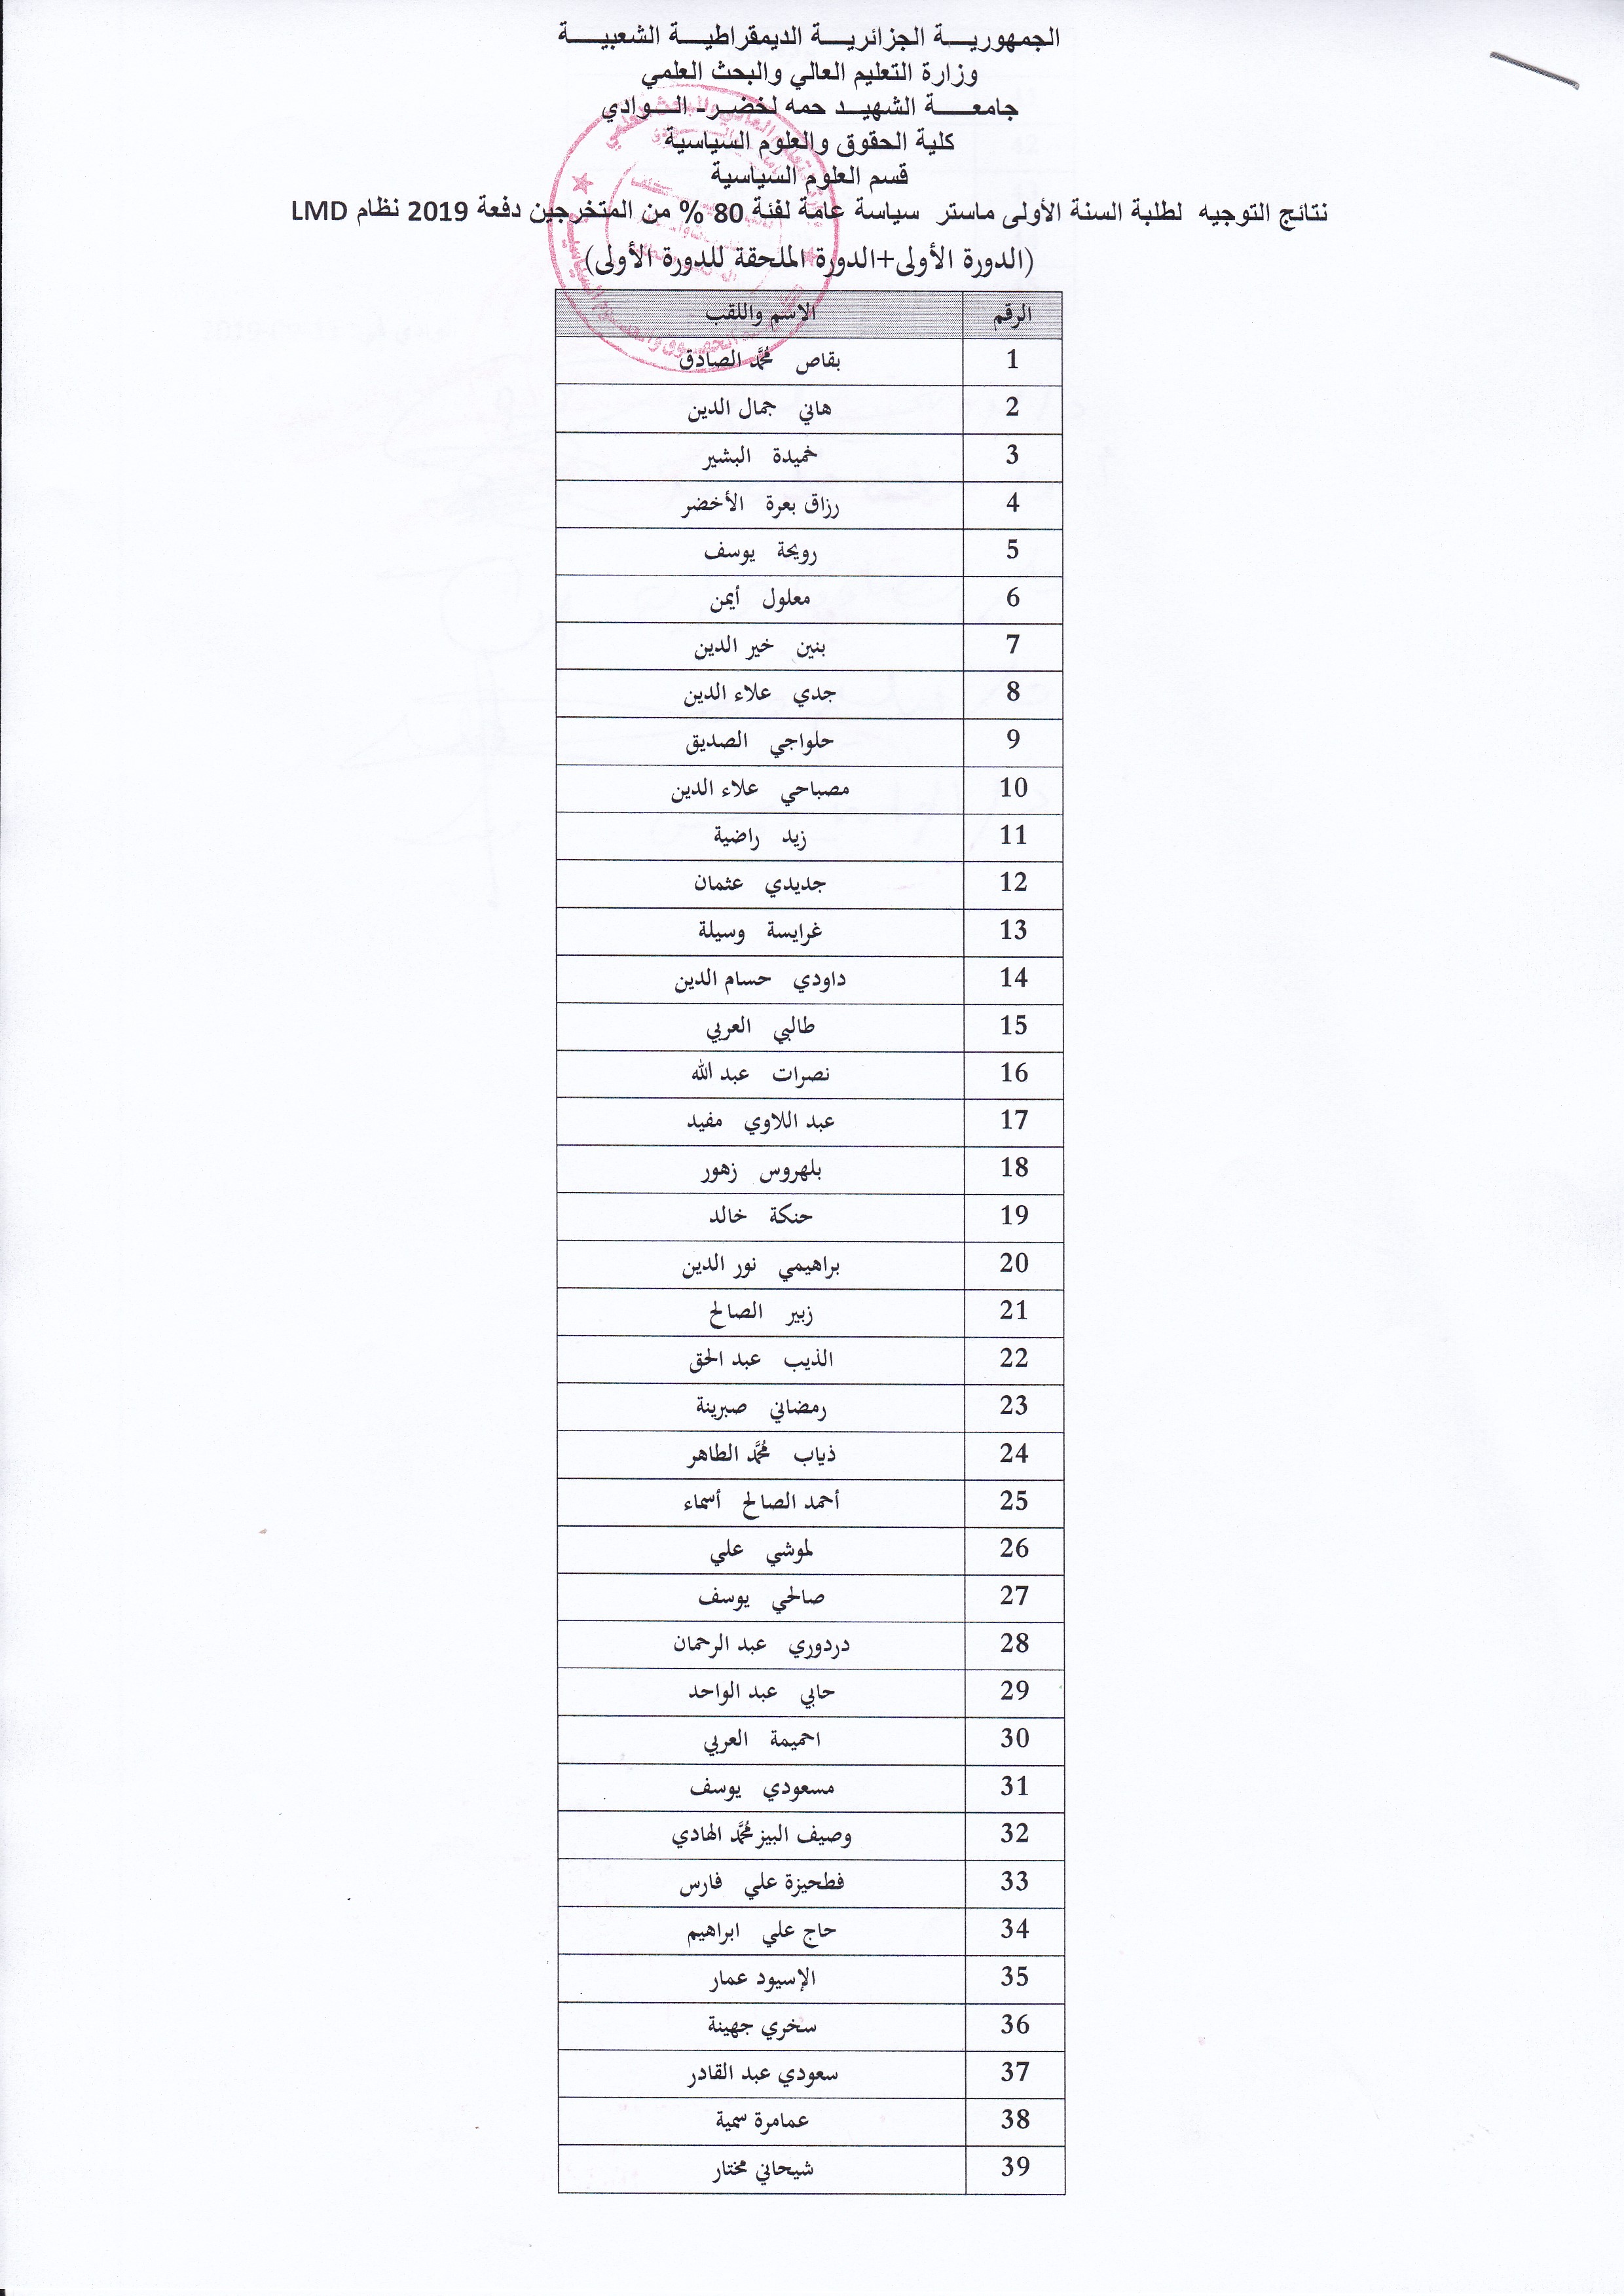 الجمهوريـــة الجزائريـــة الديمقراطيـــة الشعبيـــة
وزارة التعليم العالي والبحث العلمي
جامعـــة الشهيــد حمه لخضـر- الـــوادي
كلية الحقوق والعلوم السياسية
قسم العلوم السياسية
نتائج التوجيه لطلبة السنة الأولى ماستر سياسة عامة لفئة 80 % من المتخرجين دفعة 2019 نظام LMD
(الدورة الأولى+الدورة الملحقة للدورة الأولى)
الرقم الاسم واللقب
1 بقاص محمَّد الصادق
2 هاني جمال الدين
3 خميدة البشير
4 رزاق بعرة الأخضر
5 رويحة يوسف
6 معلول أيمن
7 بنين خير الدين
8 جدي علاء الدين
9 حلواجي الصديق
10 مصباحي علاء الدين
11 زيد راضية
12 جديدي عثمان
13 غرايسة وسيلة
14 داودي حسام الدين
15 طالبي العربي
16 نصرات عبد الله
17 عبد اللاوي مفيد
18 بلهروس زهور
19 حنكة خالد
20 براهيمي نور الدين
21 زبير الصالح
22 الذيب عبد الحق
23 رمضاني صبرينة
24 ذياب محمَّد الطاهر
25 أحمد الصالح أسماء
26 لموشي علي
27 صالحي يوسف
28 دردوري عبد الرحمان
29 حابي عبد الواحد
30 احميمة العربي
31 مسعودي يوسف
32 وصيف البيز محمَّد الهادي
33 فطحيزة علي فارس
34 حاج علي ابراهيم
35 الإسيود عمار
36 سخري جهينة
37 سعودي عبد القادر
38 عمامرة سمية
39 شيحاني مختار